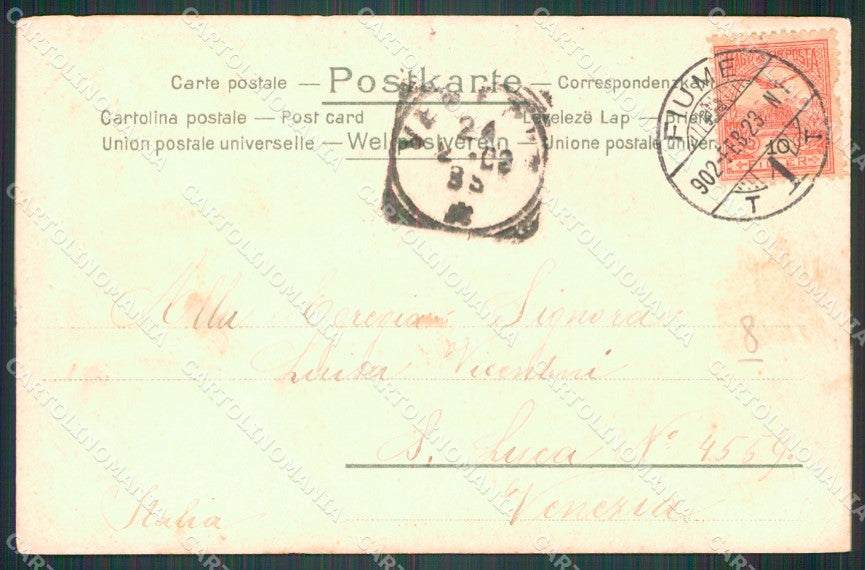 Carte postale — Postkarte — Correspondenzkarte
Cartolina postale — Post card — Levelező Lap — Briefk
Union postale universelle — Weltpostverein — Unione postale univer
FIUME
902
23
T T
1
10
FILLÉR
POSTA
24
2 02
8S
Alla Egregia Signora
Luisa Vicentini
S. Luca Nº 4559.
Venezia
Italia
8
CARTOLINOMANIA